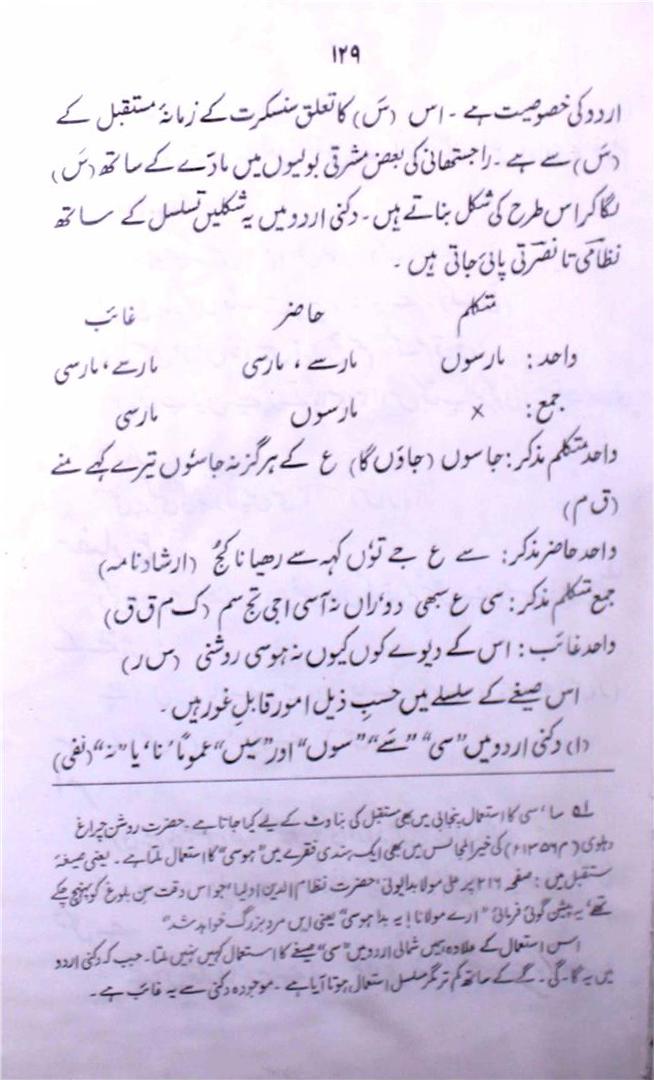 ۱۲۹
اردو کی خصوصیت ہے ۔ اس (سَ) کا تعلق سنسکرت کے زمانۂ مستقبل کے
(سَ) سے ہے ۔ راجستھانی کی بعض مشرقی بولیوں میں مادّے کے ساتھ (سَ)
لگا کر اس طرح کی شکل بناتے ہیں ۔ دکنی اردو میں یہ شکلیں تسلسل کے ساتھ
نظامی تا نصرتی پائی جاتی ہیں ۔
متکلم حاضر غائب
واحد : مارسوں مارسے ، مارسی مارسے ، مارسی
جمع : × مارسوں مارسی
واحد متکلم مذکر : جاسوں (جاؤں گا) ع کے ہرگز نہ جاسوں تیرے کہے منے
(ق م)
واحد حاضر مذکر : سے ع جے توں کہہ سے رھیا نا کچ (ارشاد نامہ)
جمع متکلم مذکر : سی ع سبھی دوراں نہ آسی اجی تج سم (ک م ق ق)
واحد غائب : اس کے دیوے کوں کیوں نہ ہوسی روشنی (س ر)
اس صیغے کے سلسلے میں حسبِ ذیل امور قابلِ غور ہیں ۔
(۱) دکنی اردو میں ”سی“ ”سے“ ”سوں“ اور ”سیں“ عموماً ’نا‘ یا ”نہ“ (نفی)
۱؎ سا ’ سی کا استعمال پنجابی میں بھی مستقبل کی بناوٹ کے لیے کیا جاتا ہے ۔ حضرت روشن چراغ
دہلوی (م ۱۳۵۶ء) کی خیر المجالس میں بھی ایک ہندی فقرے میں ”ہوسی“ کا استعمال ملتا ہے ۔ یعنی صیغۂ
مستقبل میں : صفحہ ۲۱۶ پر علی مولا بدایونی حضرت نظام الدین اولیا ”جو اس وقت سن بلوغ کو پہنچ چکے
تھے‘ یہ پیشن گوئی فرمائی ”ارے مولانا ! یہ بڈا ہوسی“ یعنی ایں مرد بزرگ خواہد شد“
اس استعمال کے علاوہ ہمیں شمالی اردو میں ”سی“ صیغے کا استعمال کہیں نہیں ملتا ۔ جب کہ دکنی اردو
میں یہ گا ۔ گی ۔ گے کے ساتھ کم تر مگر مسلسل استعمال ہوتا آیا ہے ۔ موجودہ دکنی سے یہ غائب ہے ۔